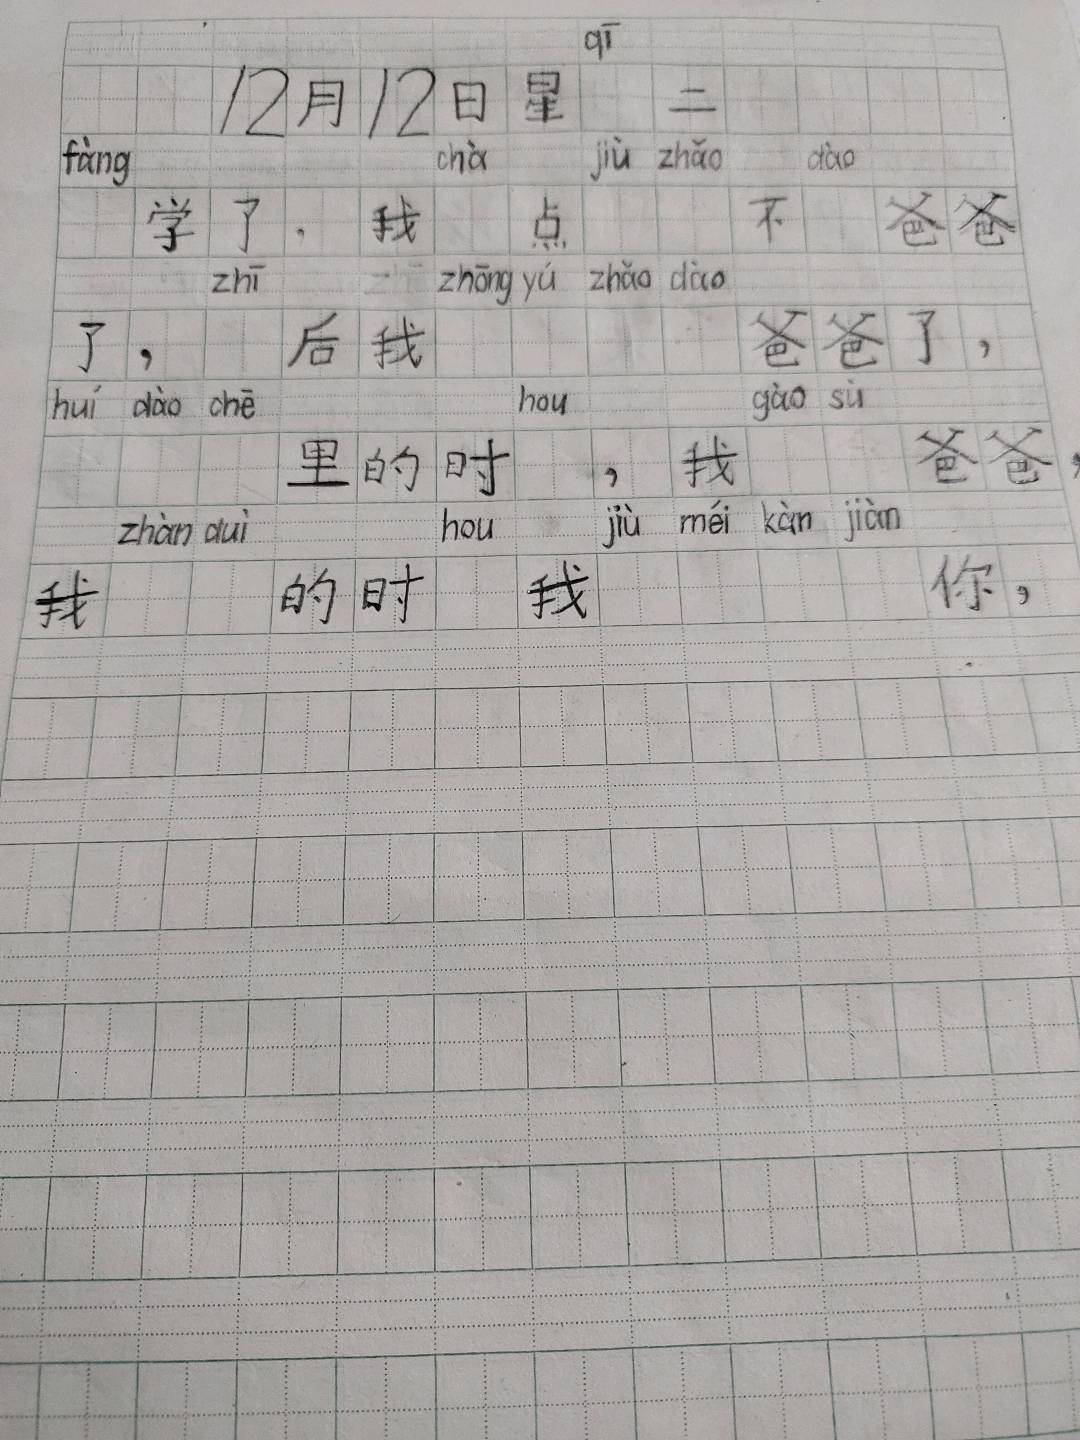 qī
12月12日星 二
fàng chà jiù zhǎo dào
学了，我 点 不 爸爸
zhī zhōng yú zhǎo dào
了， 后我 爸爸了，
huí dào chē hou gào sù
里的时 ，我 爸爸，
zhàn duì hou jiù méi kàn jiàn
我 的时 我 你，